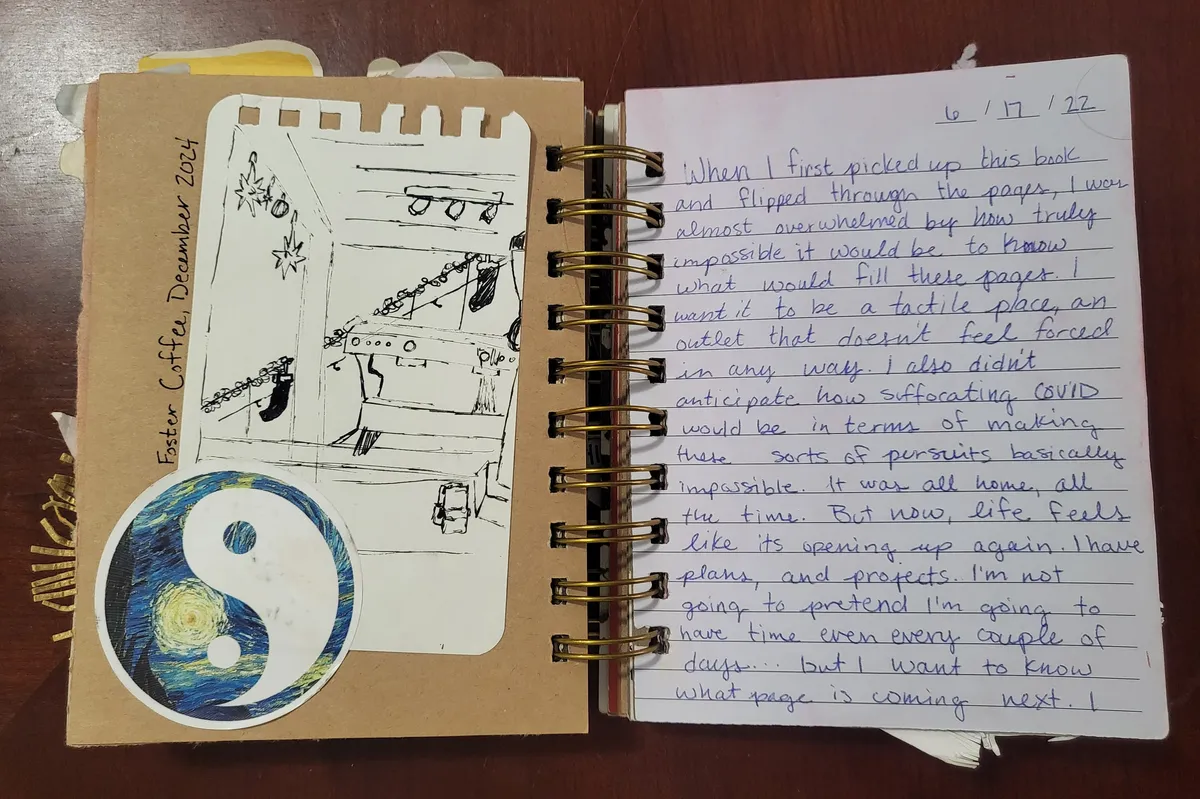 Foster Coffee, December 2024
6 / 17 / 22
When I first picked up this book
and flipped through the pages, I was
almost overwhelmed by how truly
impossible it would be to know
what would fill these pages. I
want it to be a tactile place, an
outlet that doesn't feel forced
in any way. I also didn't
anticipate how suffocating COVID
would be in terms of making
these sorts of pursuits basically
impossible. It was all home, all
the time. But now, life feels
like its opening up again. I have
plans, and projects. I'm not
going to pretend I'm going to
have time even every couple of
days... but I want to know
what page is coming next. I